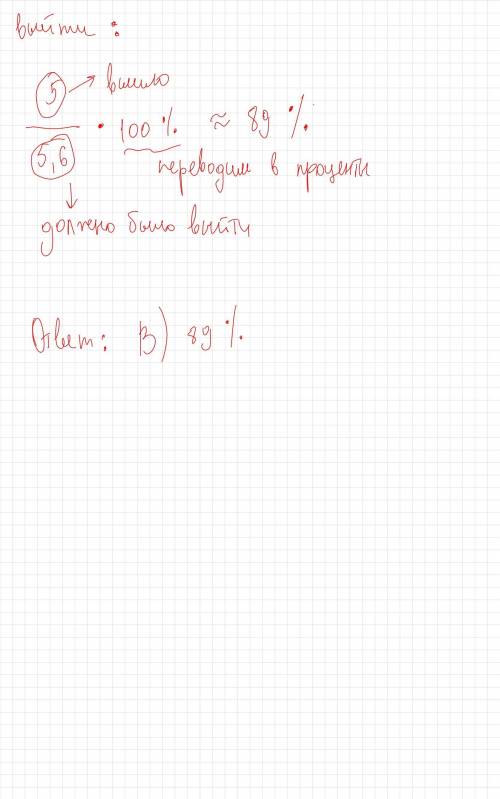 выйти:
5 → вышло
5/5,6 · 100% ≈ 89%
переводим в проценты
должно было выйти
Ответ: В) 89%